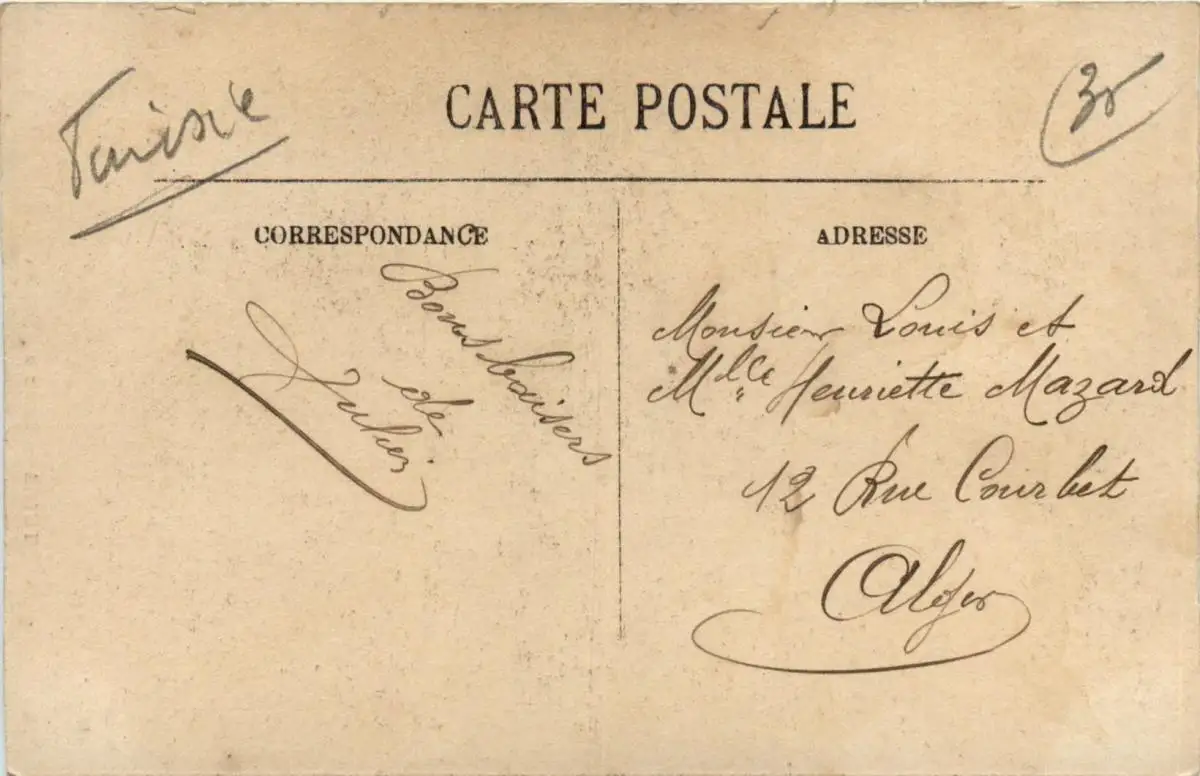 Tunisie
CARTE POSTALE
35
CORRESPONDANCE
Bons baisers
de
Julien
ADRESSE
Monsieur Louis et
Mlle Henriette Mazard
12 Rue Courbet
Alger